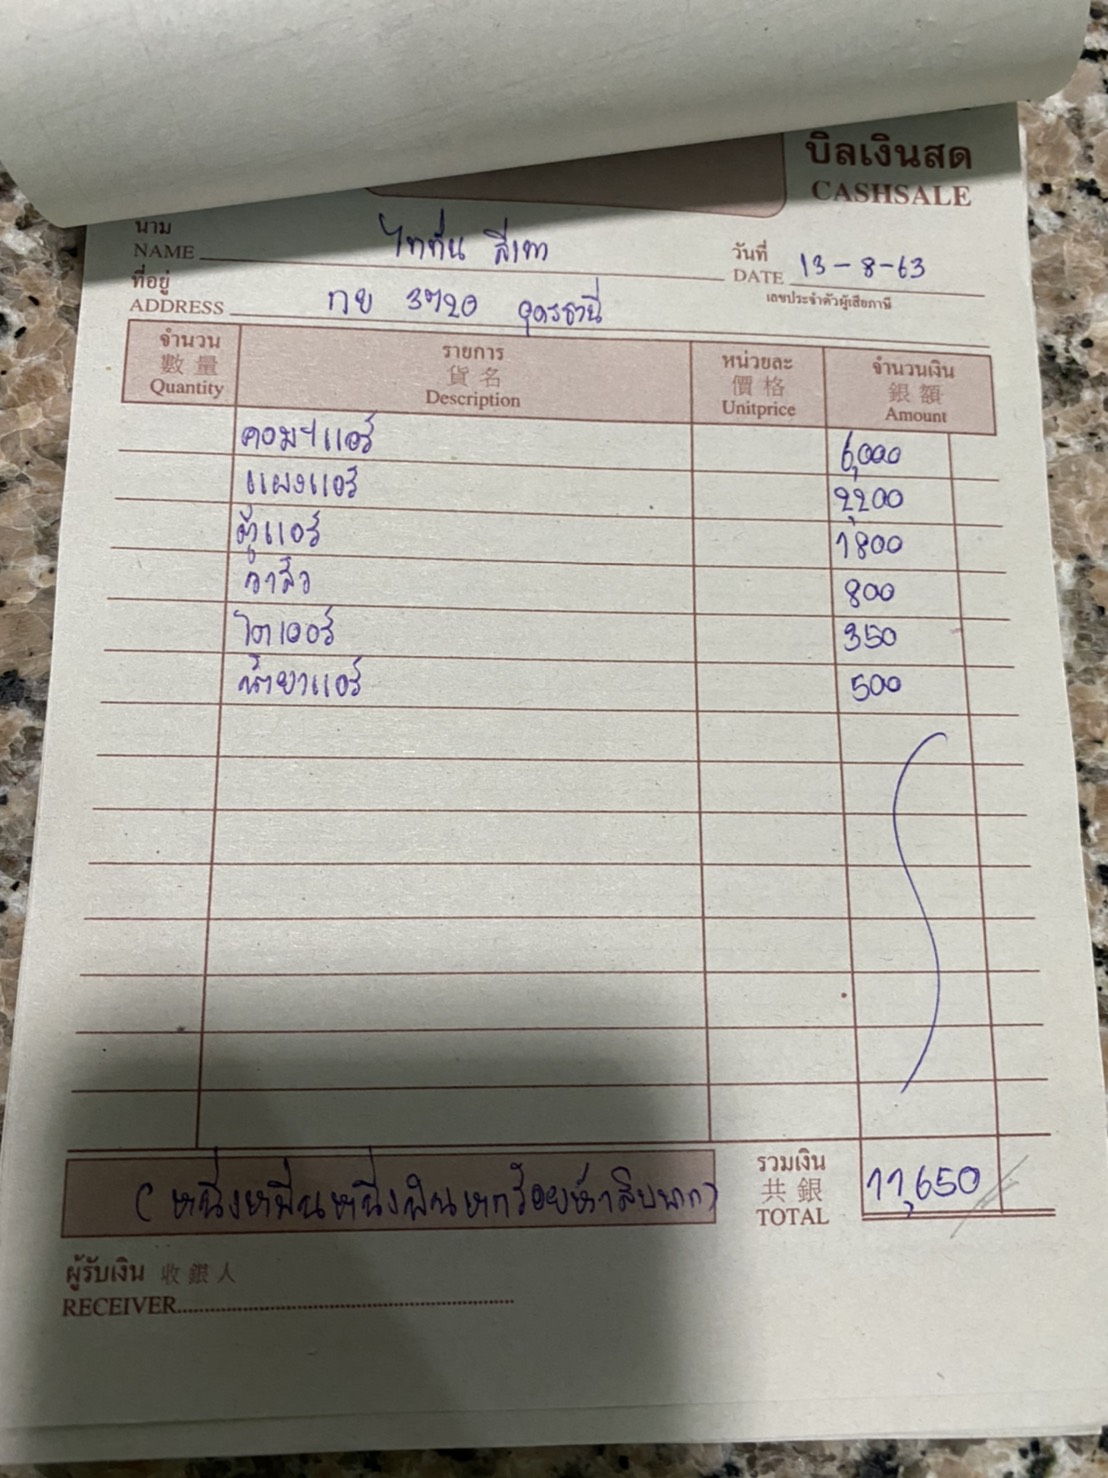 บิลเงินสด
CASHSALE
นาม
NAME ไททั่น สีเทา
วันที่
DATE 13-8-63
ที่อยู่
ADDRESS กย 3920 อุดรธานี
เลขประจำตัวผู้เสียภาษี
จำนวน รายการ หน่วยละ จำนวนเงิน
數量 貨名 價格 銀額
Quantity Description Unitprice Amount
คอมฯแอร์ 6,000
แผงแอร์ 2,200
ตู้แอร์ 1800
วาล์ว 800
ไดเออร์ 350
น้ำยาแอร์ 500
รวมเงิน
共銀
TOTAL 11,650
(หนึ่งหมื่นหนึ่งพันหกร้อยห้าสิบบาท)
ผู้รับเงิน 收銀人
RECEIVER